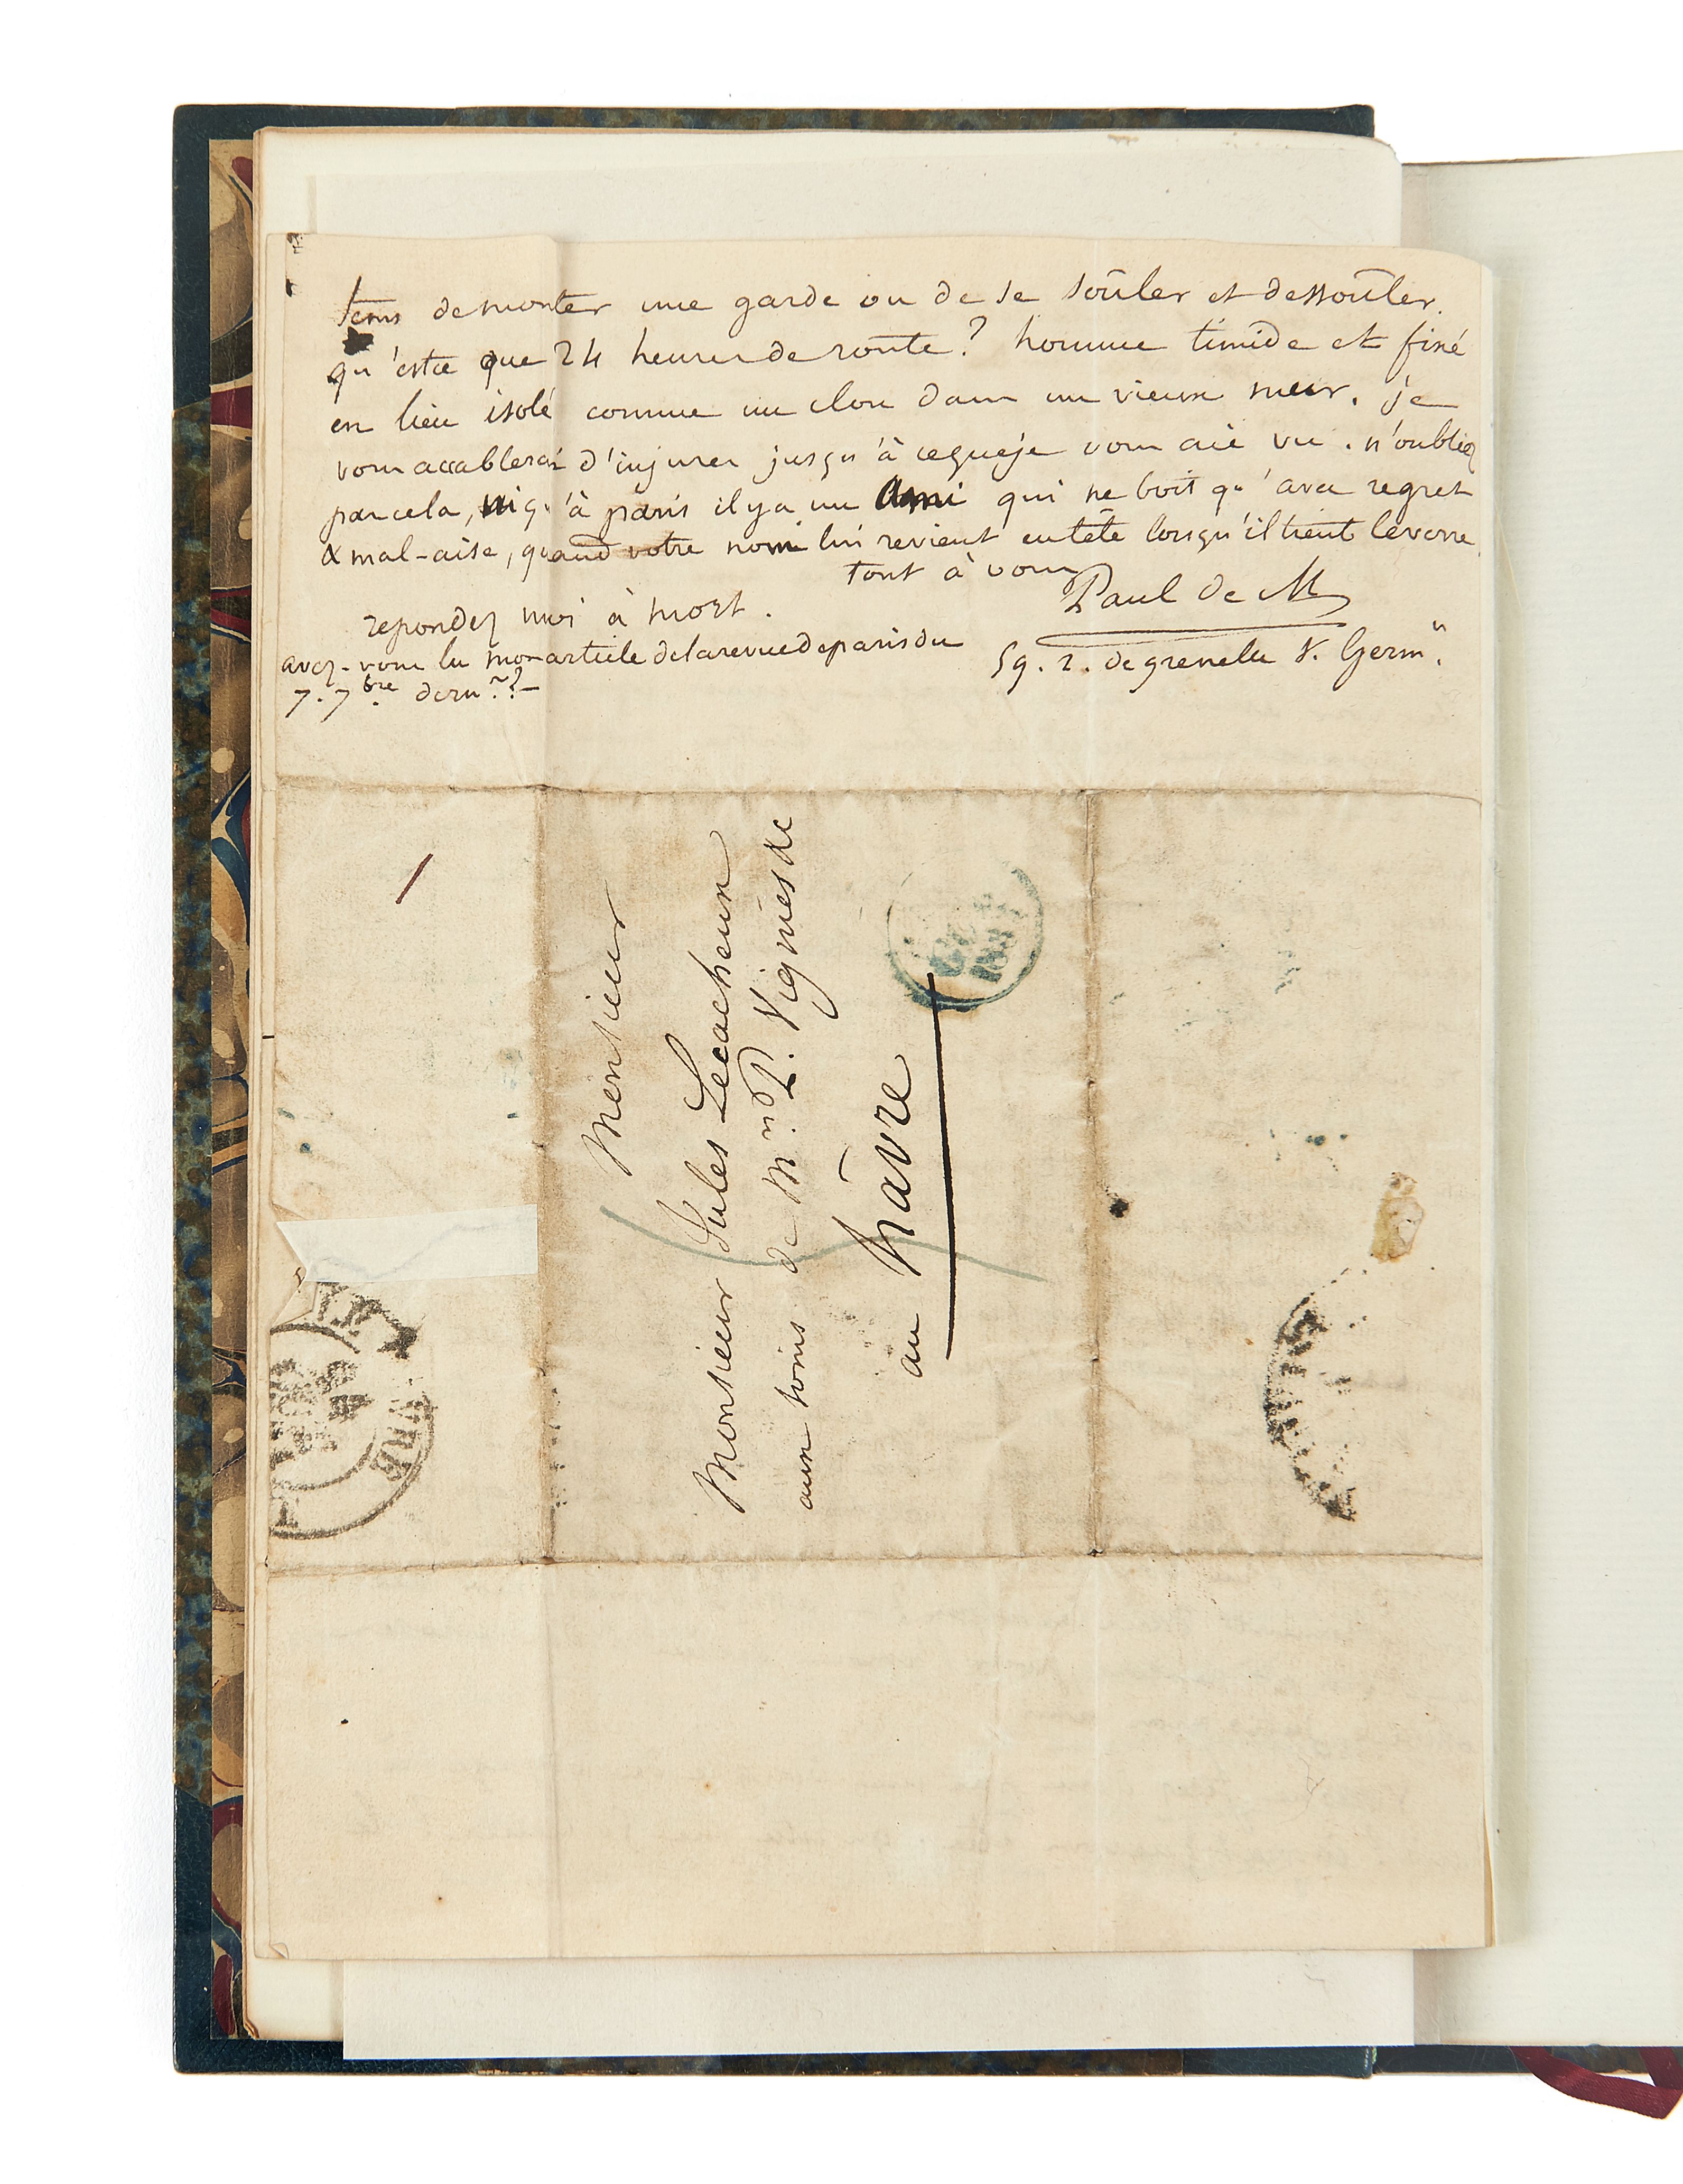 tems de monter une garde ou de se soûler et dessoûler.
qu'estce que 24 heures de route? homme timide et fixé
en lieu isolé comme un clou dans un vieux mur. je
vous accablerai d'injures jusqu'à ceque je vous aie vu. n'oubliez
pas cela, ni qu'à paris il y a un Ami qui ne boit qu'avec regret
& mal-aise, quand votre nom lui revient en tête lorsqu'il tient le verre.
tout à vous
Paul de M
repondez moi à mort.
59. r. de grenelle St. Germn.
avez-vous lu mon article de la revue de paris du
7. 7bre. dern?
Monsieur
Monsieur Jules Lecacheux
aux soins de Mn. P. Vignes &c
au hâvre